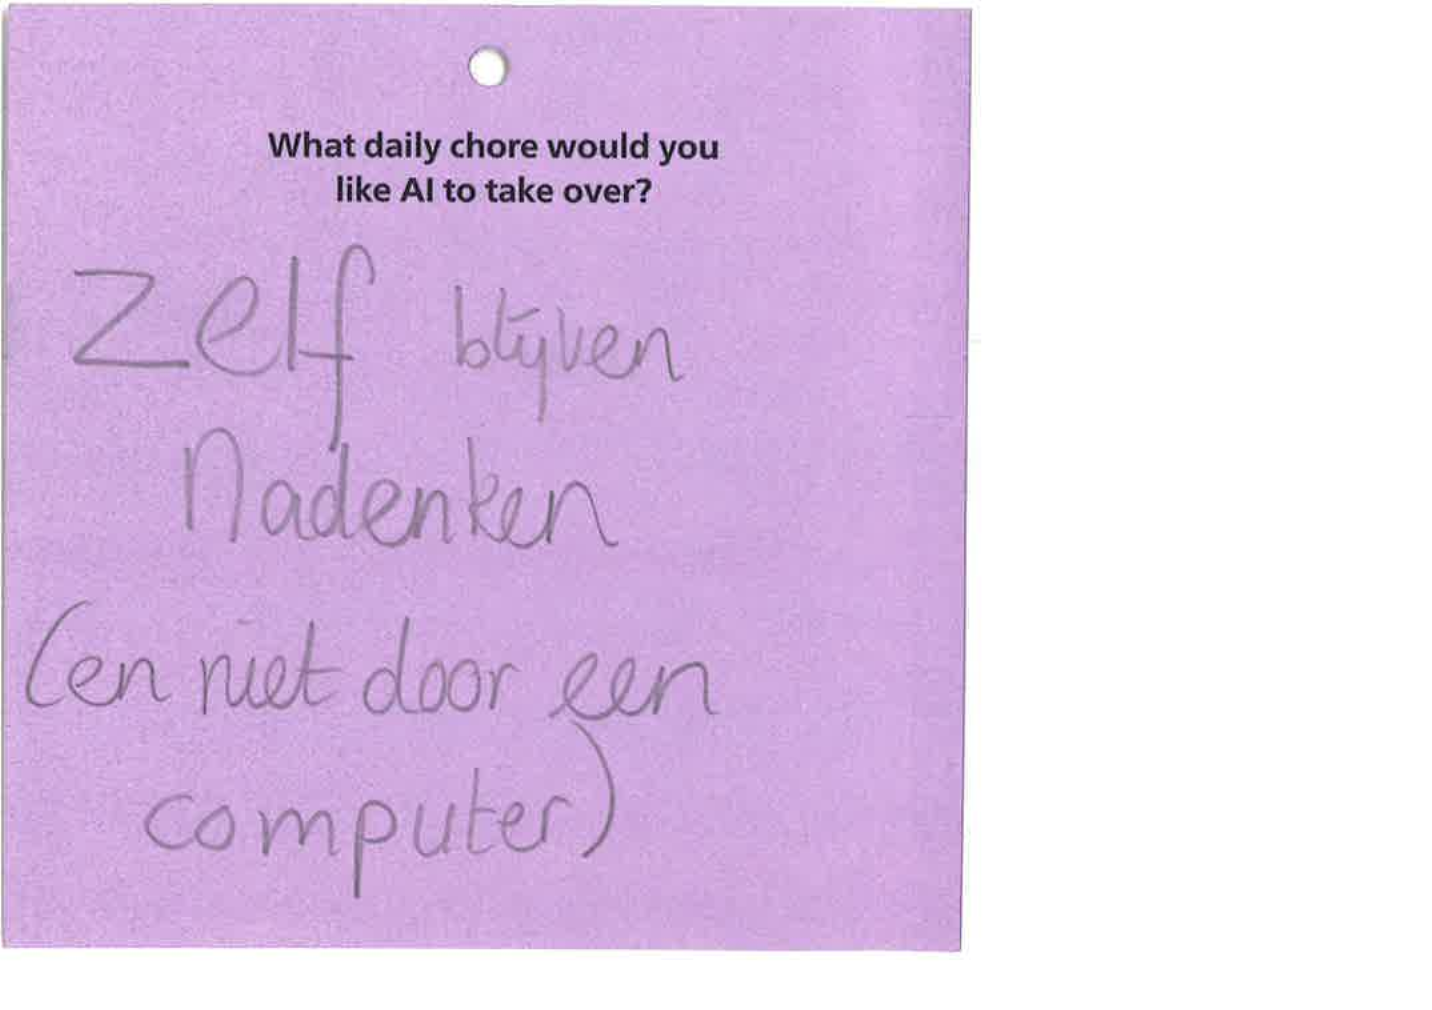 What daily chore would you
like AI to take over?
Zelf blijven
Nadenken
(en niet door een
computer)